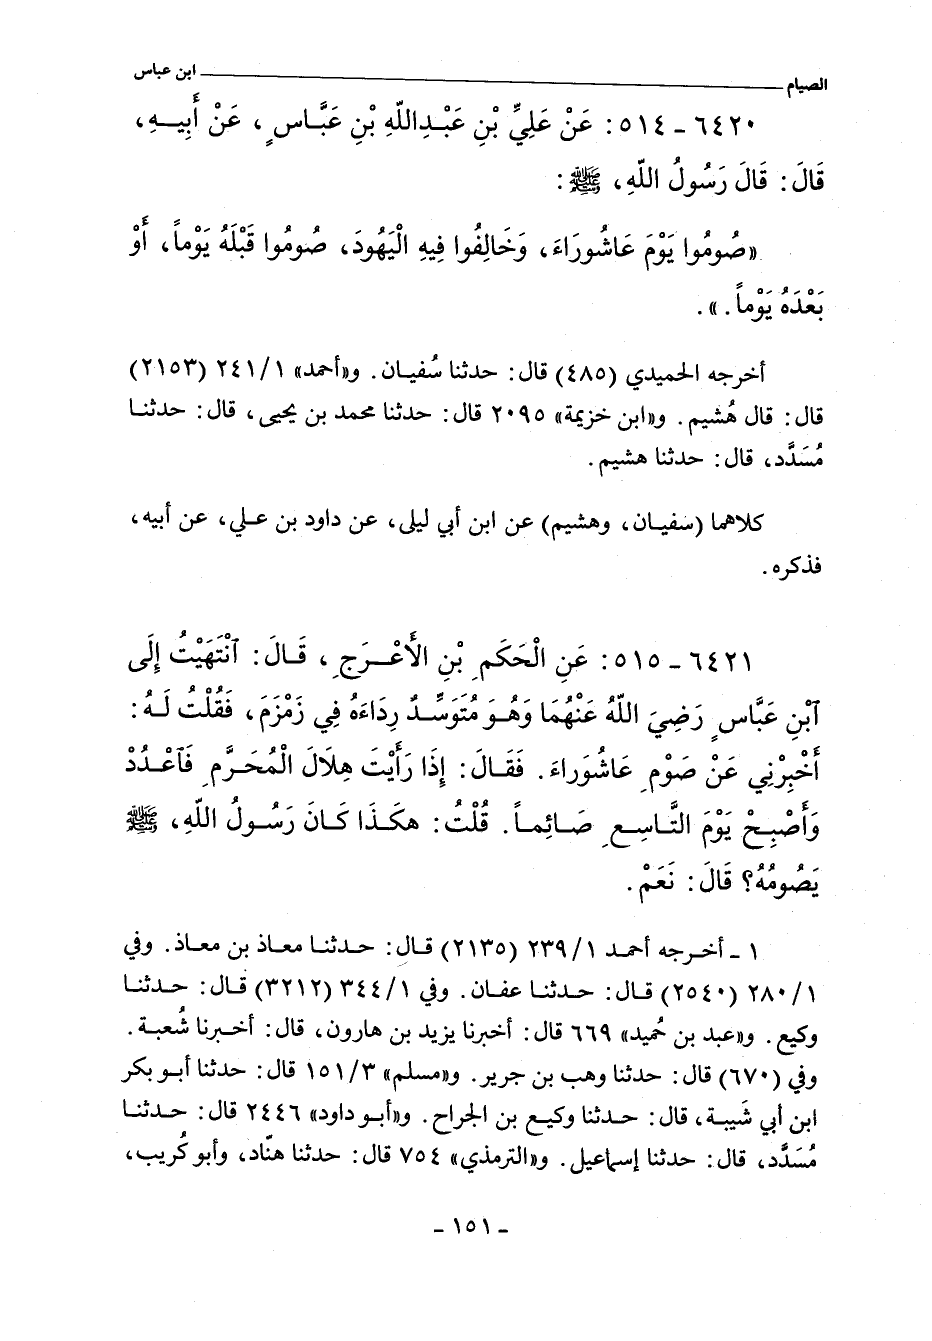 الصيام ابن عباس
٦٤٢٠ - ٥١٤: عَنْ عَلِيِّ بْنِ عَبْدِاللّهِ بْنِ عَبَّاسٍ، عَنْ أَبِيهِ،
قَالَ: قَالَ رَسُولُ اللّهِ، ﷺ:
«صُومُوا يَوْمَ عَاشُورَاءَ، وَخَالِفُوا فِيهِ الْيَهُودَ، صُومُوا قَبْلَهُ يَوْماً، أَوْ
بَعْدَهُ يَوْماً.».
أخرجه الحميدي (٤٨٥) قال: حدثنا سُفيان. و«أحمد» ٢٤١/١ (٢١٥٣)
قال: قال هُشيم. و«ابن خزيمة» ٢٠٩٥ قال: حدثنا محمد بن يحيى، قال: حدثنا
مُسَدَّد، قال: حدثنا هشيم.
كلاهما (سفيان، وهشيم) عن ابن أبي ليلى، عن داود بن علي، عن أبيه،
فذكره.
٦٤٢١ - ٥١٥: عَنِ الْحَكَمِ بْنِ الأَعْرَجِ، قَالَ: ٱنْتَهَيْتُ إِلَى
ٱبْنِ عَبَّاسٍ رَضِيَ اللّهُ عَنْهُمَا وَهُوَ مُتَوَسِّدٌ رِدَاءَهُ فِي زَمْزَمَ، فَقُلْتُ لَهُ:
أَخْبِرْنِي عَنْ صَوْمِ عَاشُورَاءَ. فَقَالَ: إِذَا رَأَيْتَ هِلَالَ الْمُحَرَّمِ فَٱعْدُدْ
وَأَصْبِحْ يَوْمَ التَّاسِعِ صَائِماً. قُلْتُ: هكَذَا كَانَ رَسُولُ اللّهِ، ﷺ
يَصُومُهُ؟ قَالَ: نَعَمْ.
١ - أخرجه أحمد ٢٣٩/١ (٢١٣٥) قال: حدثنا معاذ بن معاذ. وفي
٢٨٠/١ (٢٥٤٠) قال: حدثنا عفان. وفي ٣٤٤/١ (٣٢١٢) قال: حدثنا
وكيع. و«عبد بن حُميد» ٦٦٩ قال: أخبرنا يزيد بن هارون، قال: أخبرنا شُعبة.
وفي (٦٧٠) قال: حدثنا وهب بن جرير. و«مسلم» ١٥١/٣ قال: حدثنا أبو بكر
ابن أبي شَيبة، قال: حدثنا وكيع بن الجراح. و«أبو داود» ٢٤٤٦ قال: حدثنا
مُسَدَّد، قال: حدثنا إسماعيل. و«الترمذي» ٧٥٤ قال: حدثنا هنّاد، وأبو كُريب،
- ١٥١ -